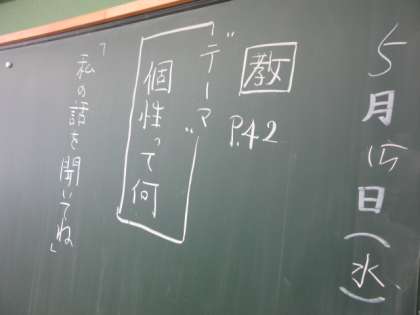 5月15日(水)
教
P.42
"テーマ"
個性って何
「私の話を聞いてね」